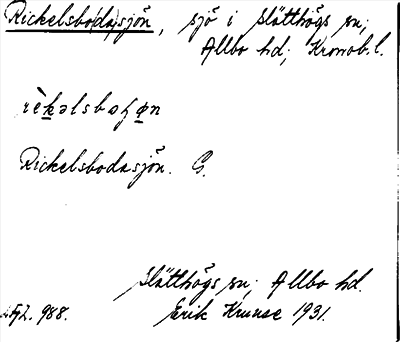 Rickelsbo(da)sjön, sjö i Slätthögs sn;
Allbo hd; Kronob. l.
Rickelsbodasjön. G.
Slätthögs sn; Allbo hd.
988. Erik Kruuse 1931.